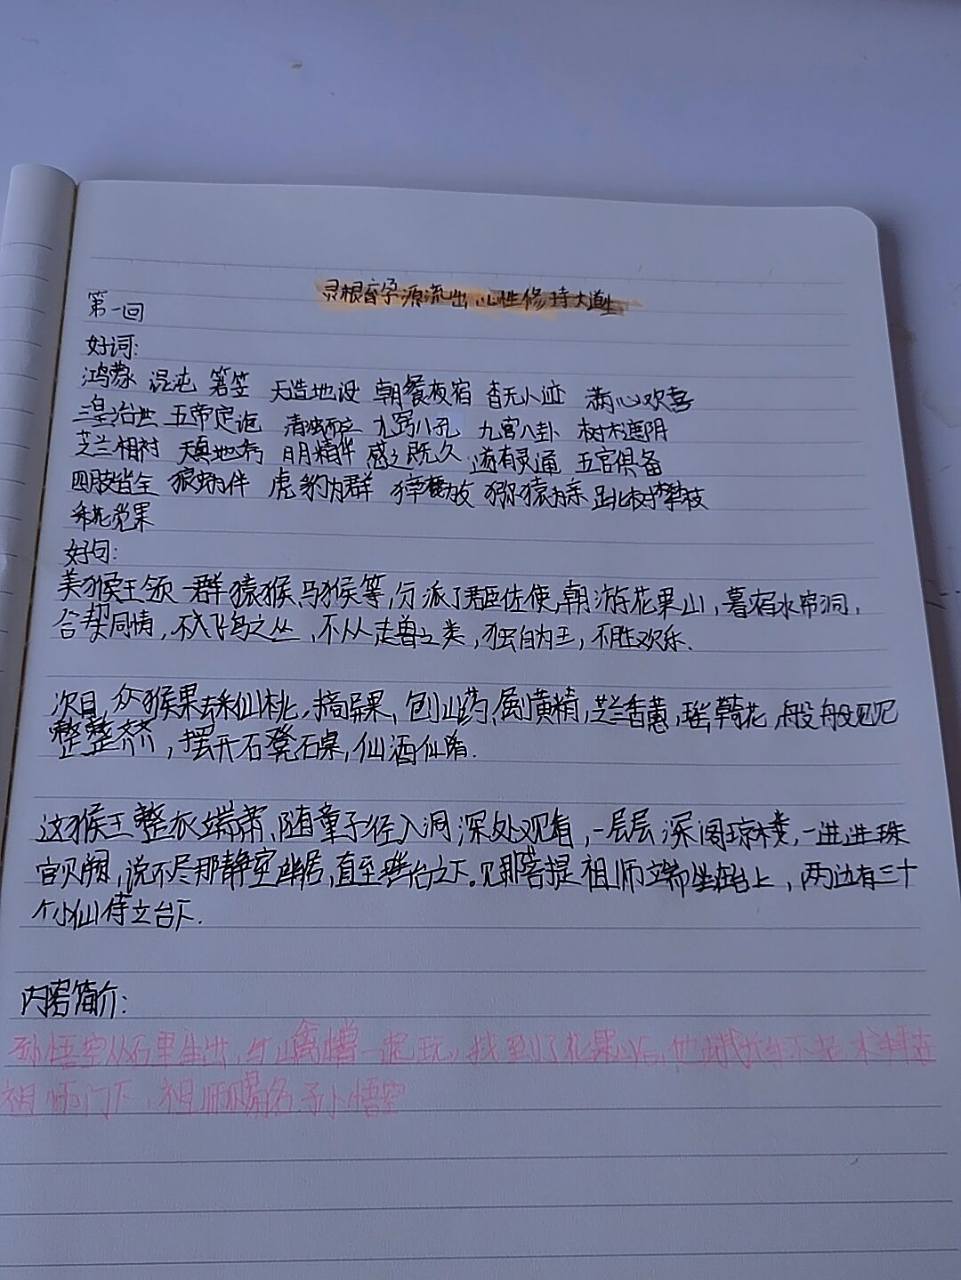 灵根育孕源流出 心性修持大道生
第一回
好词:
鸿蒙 混沌 箬笠 天造地设 朝餐夜宿 杳无人迹 满心欢喜
三皇治世 五帝定伦 九窍八孔 九宫八卦 树木遮阴
芝兰相衬 天真地秀 日月精华 感之既久 遂有灵通 五官俱备
四肢皆全 狼虫为伴 虎豹为群 獐鹿为友 猕猿为亲 跳树攀枝
采花觅果
好句:
美猴王领一群猿猴、马猴等,分派了君臣佐使,朝游花果山,暮宿水帘洞,
合契同情,不入飞鸟之丛,不从走兽之类,独自为王,不胜欢乐.
次日,众猴果去采仙桃,摘异果,刨山药,㔉黄精,芝兰香蕙,瑶草奇花,般般
整整齐齐,摆开石凳石桌,仙酒仙肴.
这猴王整衣端肃,随童子径入洞深处观看,一层层深阁琼楼,一进进珠
宫贝阙,说不尽那静室幽居,直至瑶台之下。见那菩提祖师端坐在台上,两边有三十
个小仙侍立台下.
内容简介:
孙悟空从石里生出,一起玩,找到了花果山
祖师门下,祖师赐名孙悟空